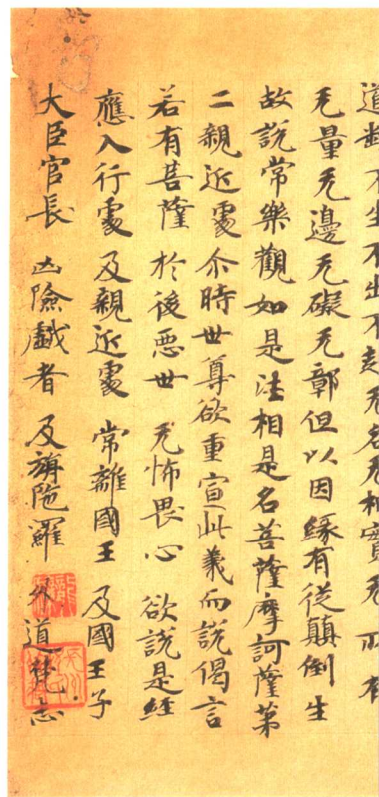 道斷不生不出不起无名无相實无所有
无量无邊无礙无鄣但以因緣有從顛倒生
故說常樂觀如是法相是名菩薩摩訶薩第
二親近處尒時世尊欲重宣此義而說偈言
若有菩薩 於後惡世 无怖畏心 欲說是經
應入行處 及親近處 常離國王 及國王子
大臣官長 凶險戲者 及旃陁羅 外道梵志